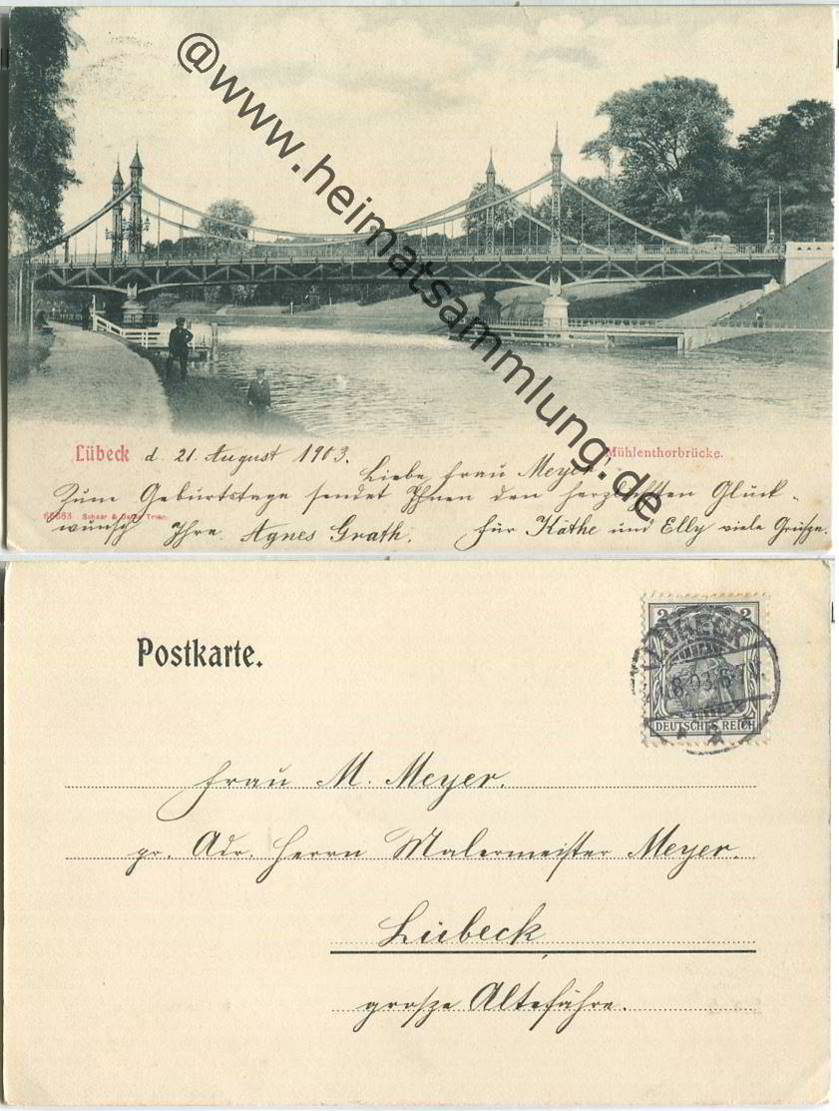 @www.heimatsammlung.de
Lübeck d. 21. August 1903.
Mühlenthorbrücke.
Liebe Frau Meyer!
Zum Geburtstage sendet Ihnen den herzlichsten Glück-
wunsch Ihre Agnes Grath. Für Käthe und Elly viele Grüsze.
Postkarte.
2 2
LÜBECK
8.03.
DEUTSCHES REICH
Frau M. Meyer.
pr. Adr. Herrn Malermeister Meyer.
Lübeck
grosze Altefähre.